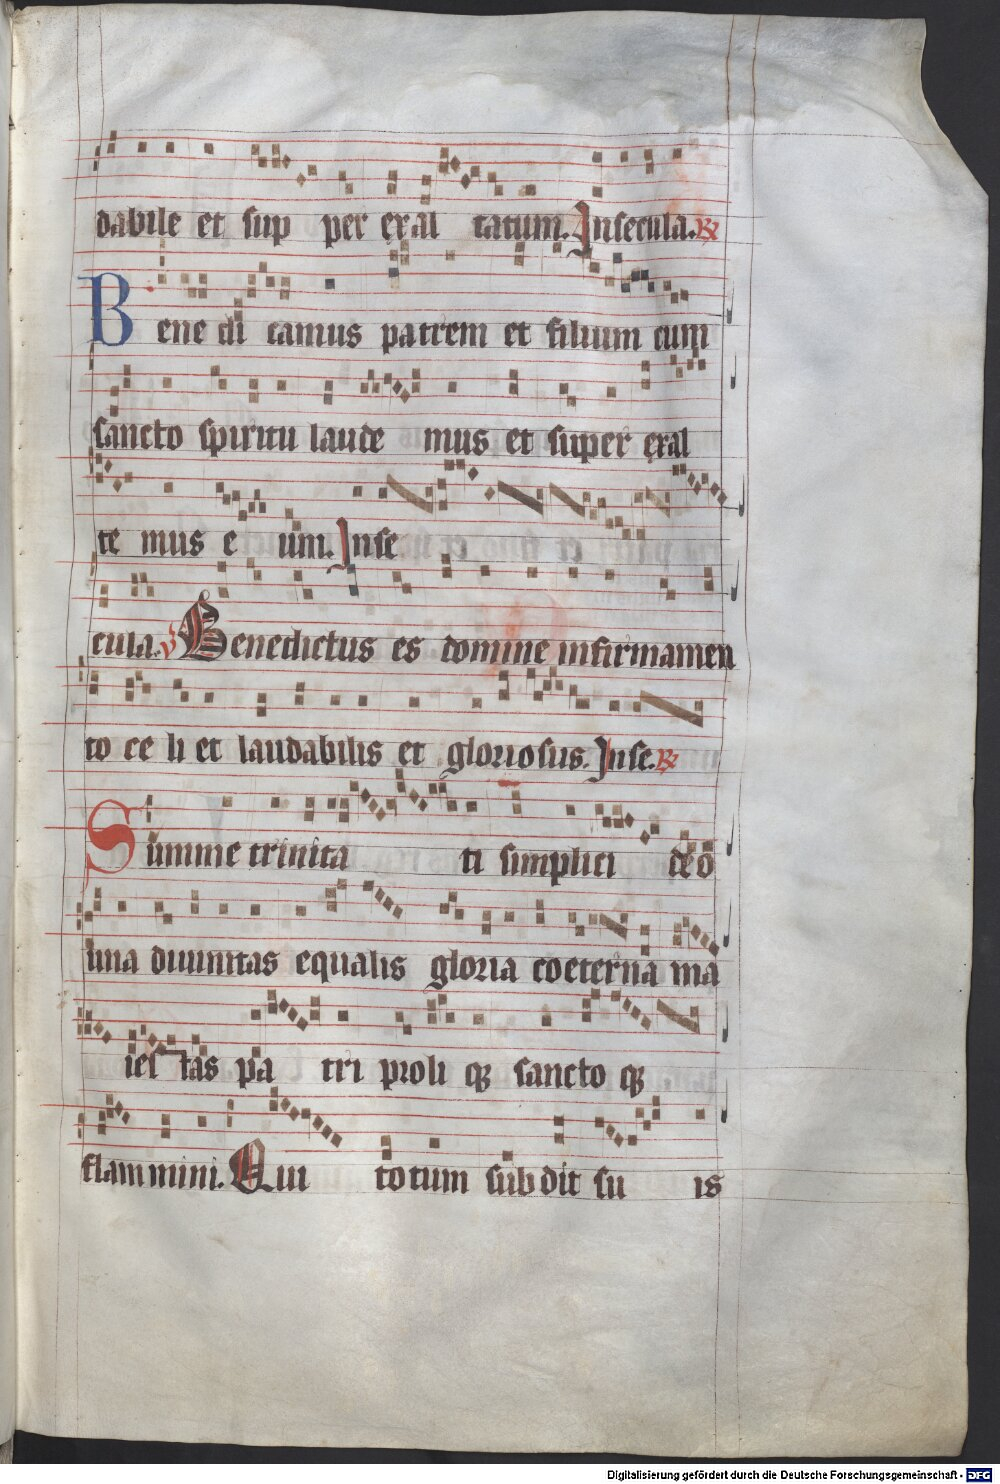 dabile et sup per exal tatum. In secula. ℟
Bene di camus patrem et filium cum
sancto spiritu laude mus et super exal
te mus e um. In se
cula. ℣ Benedictus es domine in firmamen
to ce li et laudabilis et gloriosus. In se. ℟
Summe trinita ti simplici deo
una diuinitas equalis gloria coeterna ma
ies tas pa tri proli qꝫ sancto qꝫ
flammini. Qui totum subdit su is
Digitalisierung gefördert durch die Deutsche Forschungsgemeinschaft - DFG